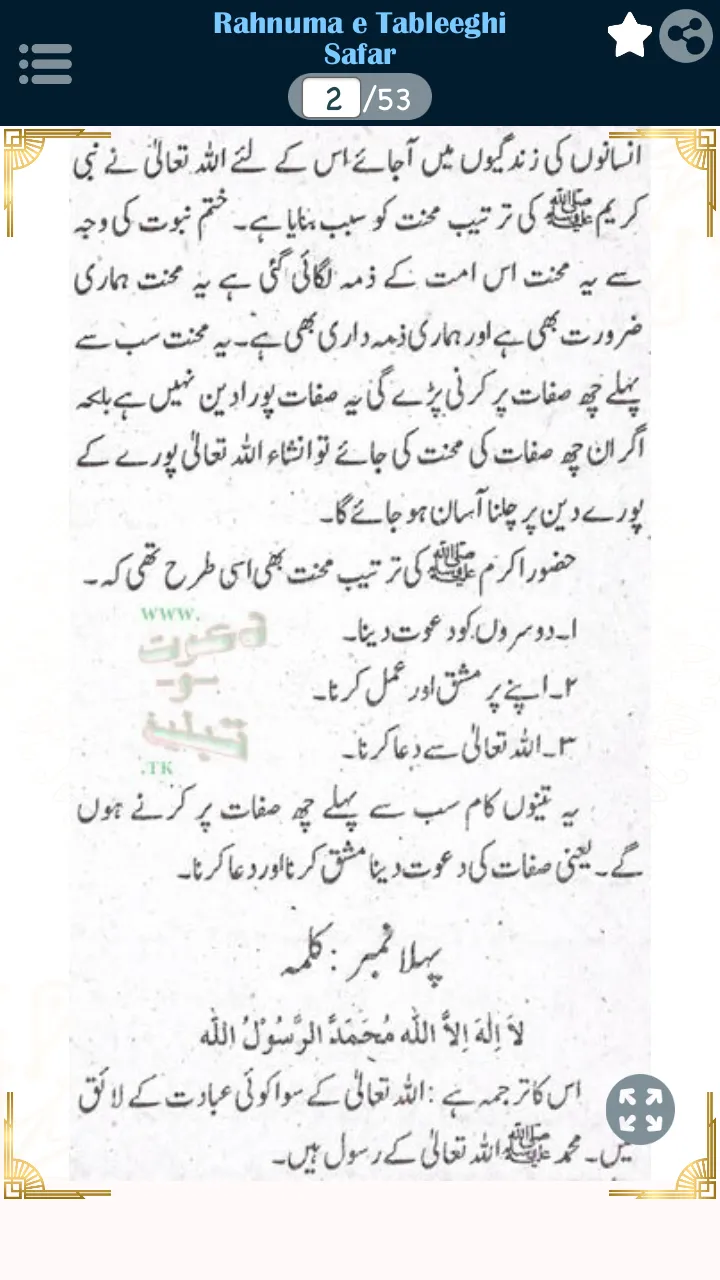 Rahnuma e Tableeghi
Safar
2 /53
انسانوں کی زندگیوں میں آجائے اس کے لئے اللہ تعالیٰ نے نبی
کریم ﷺ کی ترتیب محنت کو سبب بنایا ہے۔ ختم نبوت کی وجہ
سے یہ محنت اس امت کے ذمہ لگائی گئی ہے یہ محنت ہماری
ضرورت بھی ہے اور ہماری ذمہ داری بھی ہے۔ یہ محنت سب سے
پہلے چھ صفات پر کرنی پڑے گی یہ صفات پورا دین نہیں ہے بلکہ
اگر ان چھ صفات کی محنت کی جائے تو انشاء اللہ تعالیٰ پورے کے
پورے دین پر چلنا آسان ہو جائے گا۔
حضور اکرم ﷺ کی ترتیب محنت بھی اسی طرح تھی کہ۔
۱۔ دوسروں کو دعوت دینا۔
۲۔ اپنے پر مشق اور عمل کرنا۔
۳۔ اللہ تعالیٰ سے دعا کرنا۔
www.
دعوت
-و-
تبلیغ
.TK
یہ تینوں کام سب سے پہلے چھ صفات پر کرنے ہوں
گے۔ یعنی صفات کی دعوت دینا مشق کرنا اور دعا کرنا۔
پہلا نمبر : کلمہ
لاَ اِلٰهَ اِلاَّ اللّٰه مُحَمَدَّ الرَّسُوْلُ اللّٰه
اس کا ترجمہ ہے : اللہ تعالیٰ کے سوا کوئی عبادت کے لائق
نہیں۔ محمد ﷺ اللہ تعالیٰ کے رسول ہیں۔